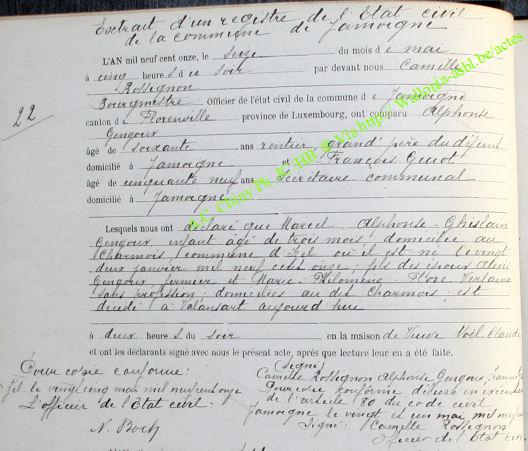 Extrait d'un registre de l'Etat civil
de la commune de Jamoigne
L'AN mil neuf cent onze, le seize du mois de mai
à cinq heures du soir par devant nous Camille
Rossignon
22
Bourgmestre Officier de l'état civil de la commune de Jamoigne
canton de Florenville province de Luxembourg, ont comparu Alphonse
Gengoux
âgé de soixante ans rentier, grand père du défunt
domicilié à Jamoigne et François Guiot
âgé de cinquante neuf ans Secrétaire communal
domicilié à Jamoigne
Lesquels nous ont déclaré que Marcel Alphonse Ghislain
Gengoux enfant âgé de trois mois, domicilié au
Charmois, commune d'Izel où il est né le vingt
deux janvier mil neuf cent onze, fils des époux
Gengoux, fermier et Marie Philomène Flore Verlaine
sans profession, domiciliés au dit Charmois est
décédé à Valansart aujourd'hui
à deux heures du soir en la maison de Veuve Noël Claude
et ont les déclarants signé avec nous le présent acte, après que lecture leur en a été faite.
(Signé)
Pour copie conforme: Camille Rossignon Alphonse Gengoux,
Izel le vingt cinq mai mil neuf cent onze Pour copie conforme
L'officier de l'Etat civil: de l'article 80 du code civil
Jamoigne le vingt et un mai mil
N. Boch Signé: Camille Rossignon
Officier de l'Etat
Clany Ph. HB Via http://Wallonia-asbl.be/actes